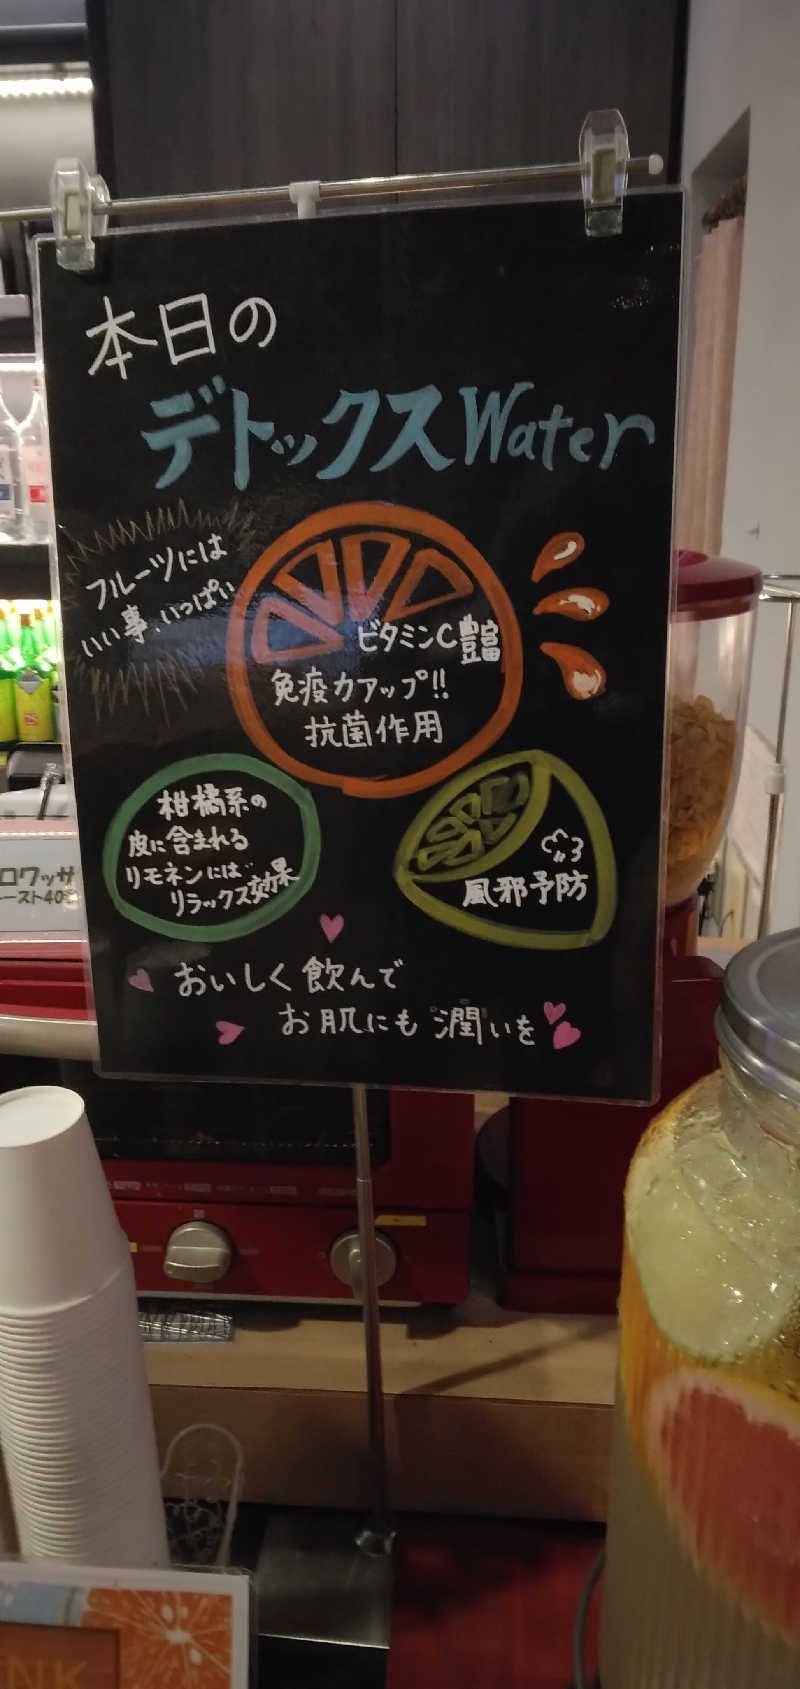 本日の
デトックスWater
フルーツには
いい事、いっぱい
ビタミンC豊富
免疫力アップ!!
抗菌作用
柑橘系の
皮に含まれる
リモネンには
リラックス効果
風邪予防
おいしく飲んで
お肌にも潤いを
ロワッサ
ースト40
NK